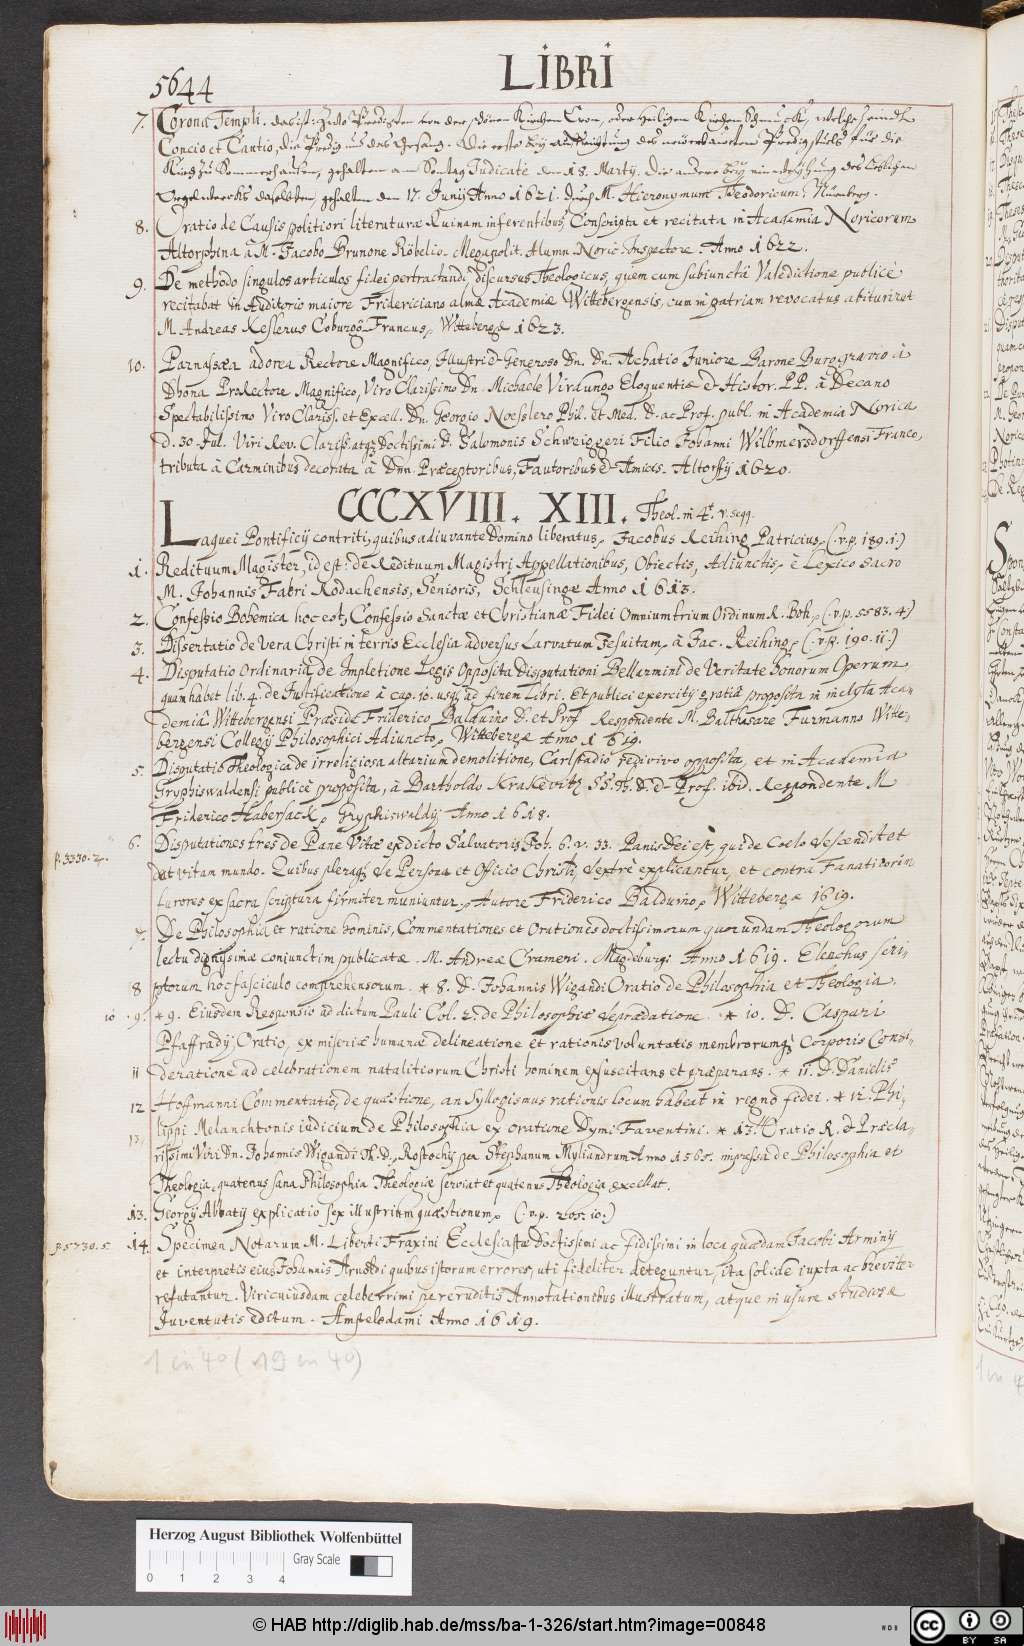 5644
LIBRI
7. Corona Templi. das ist: Zwo Predigten von der schönen Kirchen Cron, oder heiligen Kirchen Schmuck, welcher
Concio et Cantio, die Predig und das Gesang. Die erste bey des Predigstuls für die
zu Sommerhausen, gehalten am Sontag Judicate den 18. Martij. die andere bey des Löblichen
Orgelwercks daselbsten, gehalten den 17. Junij Anno 1621. durch M. Hieronymum Theodoricum. Nürnberg.
8. Oratio de Causis politiori literaturæ Ruinam inferentibus, Conscripta et recitata in Academia Noricorum
Altorphina à M. Jacobo Brunone Röbelio-Megapolit. Alumn. Noric. Inspectore. Anno 1622.
9. De methodo singulos articulos fidei pertractandi, discursus Theologicus, quem cum subiunctâ Valedictione publicè
recitabat in Auditorio maiore Fridericiano almæ Academiæ Wittebergensis, cum in patriam revocatus abituriret
M. Andreas Keslerus Coburgô-Francus, Wittebergæ 1623.
10. Parnassæa adorea Rectore Magnifico, Illustri & Generoso Dn. Dn. Achatio Juniore Barone Burggravio à
Dhona ProRectore Magnifico, Viro Clarissimo Dn. Michaele Virdungo Eloquentiæ & Histor. P.P. à Decano
Spectabilissimo Viro Clariss. et Excell. Dn. Georgio Noesslero Phil. et Med. D. ac Prof. publ. in Academia Norica
d. 30. Jul. Viri Rev. Clariss. atq; Doctissimi D. Salomonis Schweiggeri Filio Johanni Wilbmersdorffensi Franco,
tributa à Carminibus decorata à Dnn. Præceptoribus, Fautoribus & Amicis. Altorfij 1620.
CCCXVIII. XIII. Theol. in 4t. v. seqq.
Laquei Pontificij contriti, quibus adiuvante Domino liberatus, Jacobus Reihing Patricius, (v.p. 189.1.)
1. Redituum Magister, id est: de Redituum Magistri Appellationibus, Obiectis, Adiunctis, è Lexico sacro
M. Johannis Fabri Rodachensis, Senioris, Schleusingæ Anno 1613.
2. Confessio Bohemica hoc est, Confessio Sanctæ et Christianæ Fidei Omnium trium Ordinum R. Boh, (v.p. 5583.4)
3. Dissertatio de Vera Christi in terris Ecclesia adversus Larvatum Jesuitam, à Jac. Reihing, (v.p. 190.11.)
4. Disputatio Ordinaria, de Impletione Legis Opposita Disputationi Bellarmini de Veritate bonorum Operum
quam habet lib. 4. de Justificatione à cap. 10. usq; ad finem Libri. Et publici exercitij gratiâ proposita in inclyta Aca-
demiâ Wittebergensi Præside Friderico Balduino D. et Prof. Respondente M. Balthasare Furmanno Witte-
bergensi Collegij Philosophici Adiuncto, Wittebergæ Anno 1619.
5. Disputatio Theologica de irreligiosa altarium demolitione, Carlstadio redivivo opposita, et in Academia
Gryphiswaldensi publicè proposita, à Bartholdo Krakevitz SS. Th. D. & Prof. ibid. Respondente M
Friderico Habersack, Gryphiswaldij Anno 1618.
p. 3330. 2.
6. Disputationes tres de Pane Vitæ ex dicto Salvatoris Joh. 6. v. 33. Panis Dei est, qui de Coelo descendit et
dat vitam mundo. Quibus pleraq; de Persona et Officio Christi, dextrè explicantur, et contra Fanaticorum
furores ex sacra scriptura firmiter muniuntur, Autore Friderico Balduino, Wittebergæ 1619.
7. De Philosophia et ratione hominis, Commentationes et Orationes doctissimorum quorundam Theologorum
lectu dignissimæ coniunctim publicatæ. M. Andreæ Crameri. Magdeburgi Anno 1619. Elenchus scri-
8 ptorum hoc fasciculo comprehensorum. * 8. D. Johannis Wigandi Oratio de Philosophia et Theologia.
10 . 9. * 9. Eiusdem Responsio ad dictum Pauli Col. 2. de Philosophiæ deprædatione. * 10. D. Caspari
Pfaffradij Oratio, ex miseriæ humanæ delineatione et rationis voluntatis membrorumq; corporis Consi-
11 deratione ad celebrationem natalitiorum Christi hominem exsuscitans et præparans. * 11. D. Danielis
12 Hoffmanni Commentatio, de quæstione, an Syllogismus rationis locum habeat in regno fidei. * 12. Phi-
lippi Melanchtonis iudicium de Philosophia ex oratione Dymi Faventini. * 13. Oratio R. & Præcla-
13. rissimi Viri Dn. Johannis Wigandi Th. D., Rostochij per Stephanum Myliandrum Anno 1565. impressa de Philosophia et
Theologia, quatenus sana Philosophia Theologiæ serviat et quatenus Theologia excellat.
13. Georgij Abbatij explicatio sex illustrium quæstionum, (v.p. 205.10.)
p. 5730. 5.
14. Specimen Notarum M. Liberti Fraxini Ecclesiastæ doctissimi ac fidissimi in loca quædam Jacobi Arminij
et interpretis eius Johannis Arnoldi quibus istorum errores, uti fideliter deteguntur, ita solidè iuxta ac breviter
refutantur. Viri cuiusdam celeberrimi pererudits Annotationibus illustratum, atque in usum studiosæ
Juventutis editum. Amstelodami Anno 1619.
1 in 4° (19 in 4°)
Herzog August Bibliothek Wolfenbüttel
Gray Scale
0 1 2 3 4
© HAB http://diglib.hab.de/mss/ba-1-326/start.htm?image=00848
cc BY SA